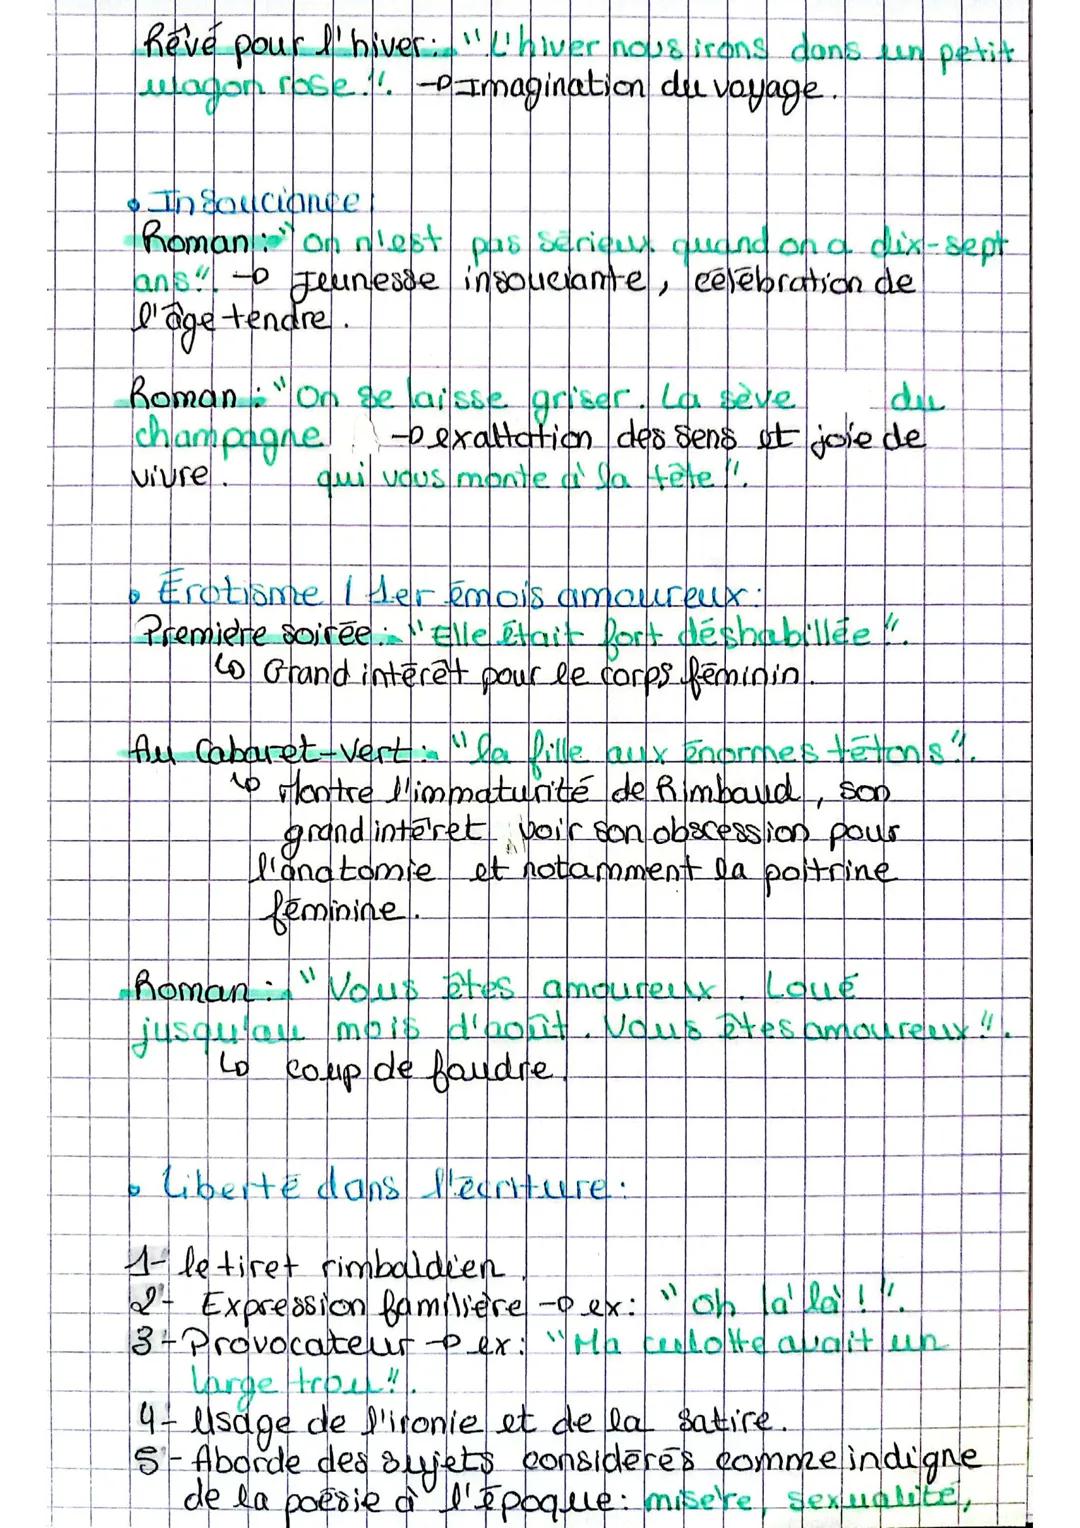 Rêvé pour l'hiver: "L'hiver nous irons dans un petit
wagon rose". → Imagination du voyage.
• Insouciance:
Roman: "on n'est pas sérieux quand on a dix-sept
ans". → Jeunesse insouciante, célébration de
l'âge tendre.
Roman: "On se laisse griser. La sève du
champagne → exaltation des sens et joie de
vivre. qui vous monte à la tête".
• Érotisme / 1er émois amoureux:
Première soirée: "Elle était fort déshabillée".
↳ Grand intérêt pour le corps féminin.
Au Cabaret-Vert: "la fille aux énormes tétons".
↳ Montre l'immaturité de Rimbaud, son
grand intérêt voir son obscession pour
l'anatomie et notamment la poitrine
féminine.
Roman: "Vous êtes amoureux. Loué
jusqu'au mois d'août. Vous êtes amoureux".
↳ coup de foudre.
• Liberté dans l'écriture:
1- le tiret rimbaldien.
2- Expression familière → ex: "oh là là!".
3- Provocateur → ex: "Ma culotte avait un
large trou".
4- Usage de l'ironie et de la satire.
5- Aborde des sujets considérés comme indigne
de la poésie à l'époque: misère, sexualité,